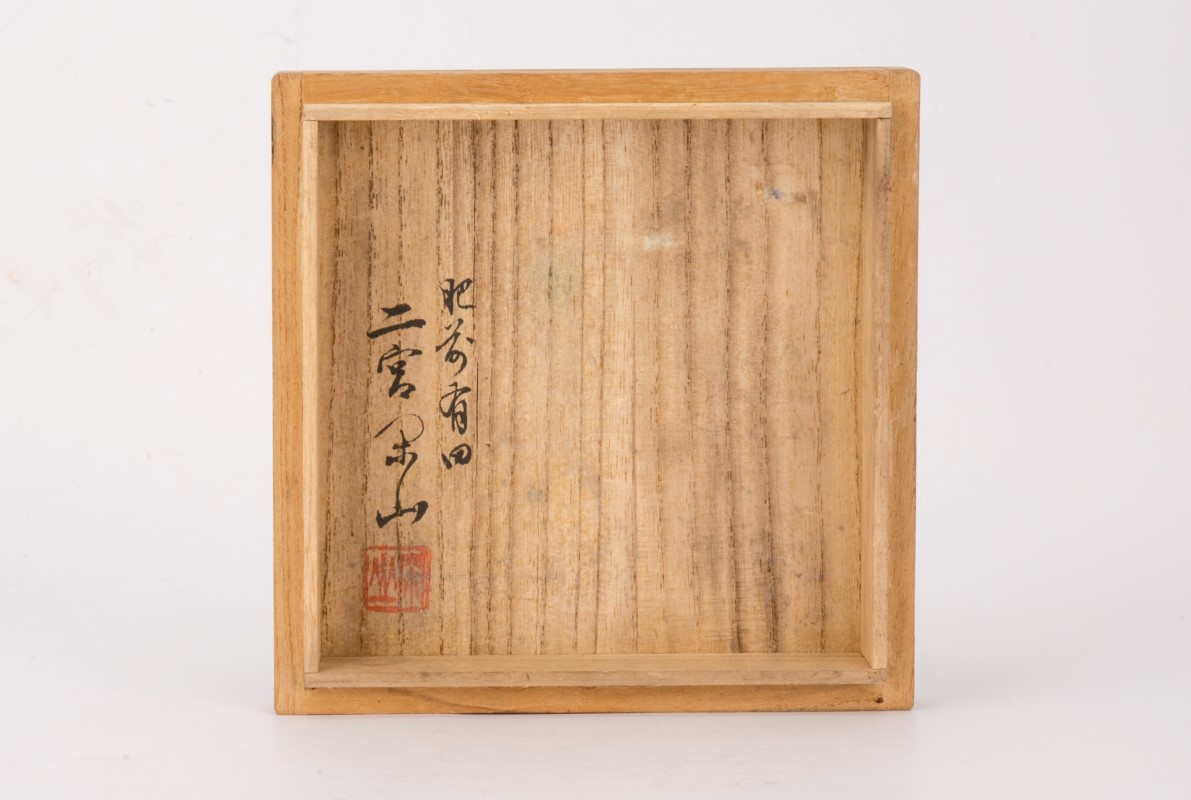 肥前有田
二宮閑山